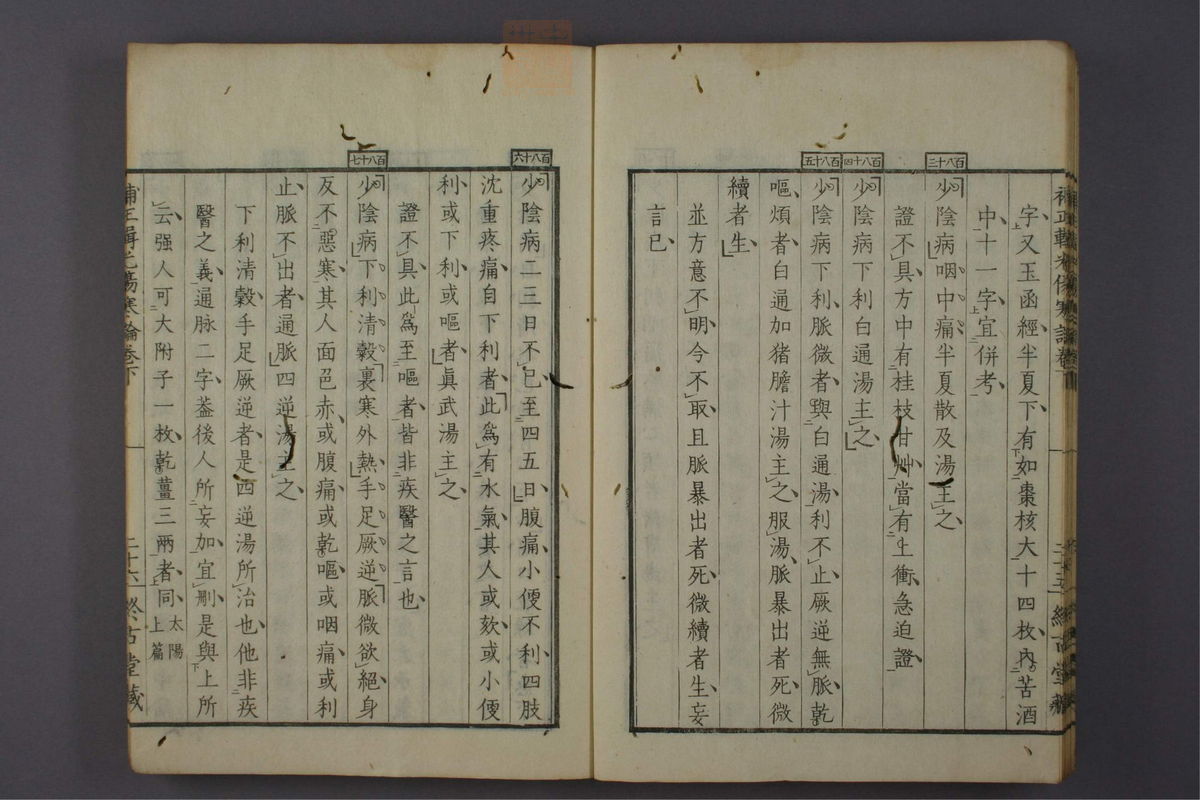 字又玉函經半夏下有如棗核大十四枚內苦酒
中十一字宜併考
百八十三
少陰病咽中痛半夏散及湯主之
證不具方中有桂枝甘艸當有上衝急迫證
百八十四
少陰病下利白通湯主之
百八十五
少陰病下利脈微者與白通湯利不止厥逆無脈乾
嘔煩者白通加猪膽汁湯主之服湯脈暴出者死微
續者生
並方意不明今不取且脈暴出者死微續者生妄
言已
百八十六
少陰病二三日不已至四五日腹痛小便不利四肢
沈重疼痛自下利者此爲有水氣其人或欬或小便
利或下利或嘔者眞武湯主之
證不具此爲至嘔者皆非疾醫之言也
百八十七
少陰病下利清穀裏寒外熱手足厥逆脈微欲絕身
反不惡寒其人面色赤或腹痛或乾嘔或咽痛或利
止脈不出者通脈四逆湯主之
下利清穀手足厥逆者是四逆湯所治也他非疾
醫之義通脉二字蓋後人所妄加宜刪是與上所
云强人可大附子一枚乾薑三兩者同太陽上篇
補正輯光傷寒論卷下
二十六